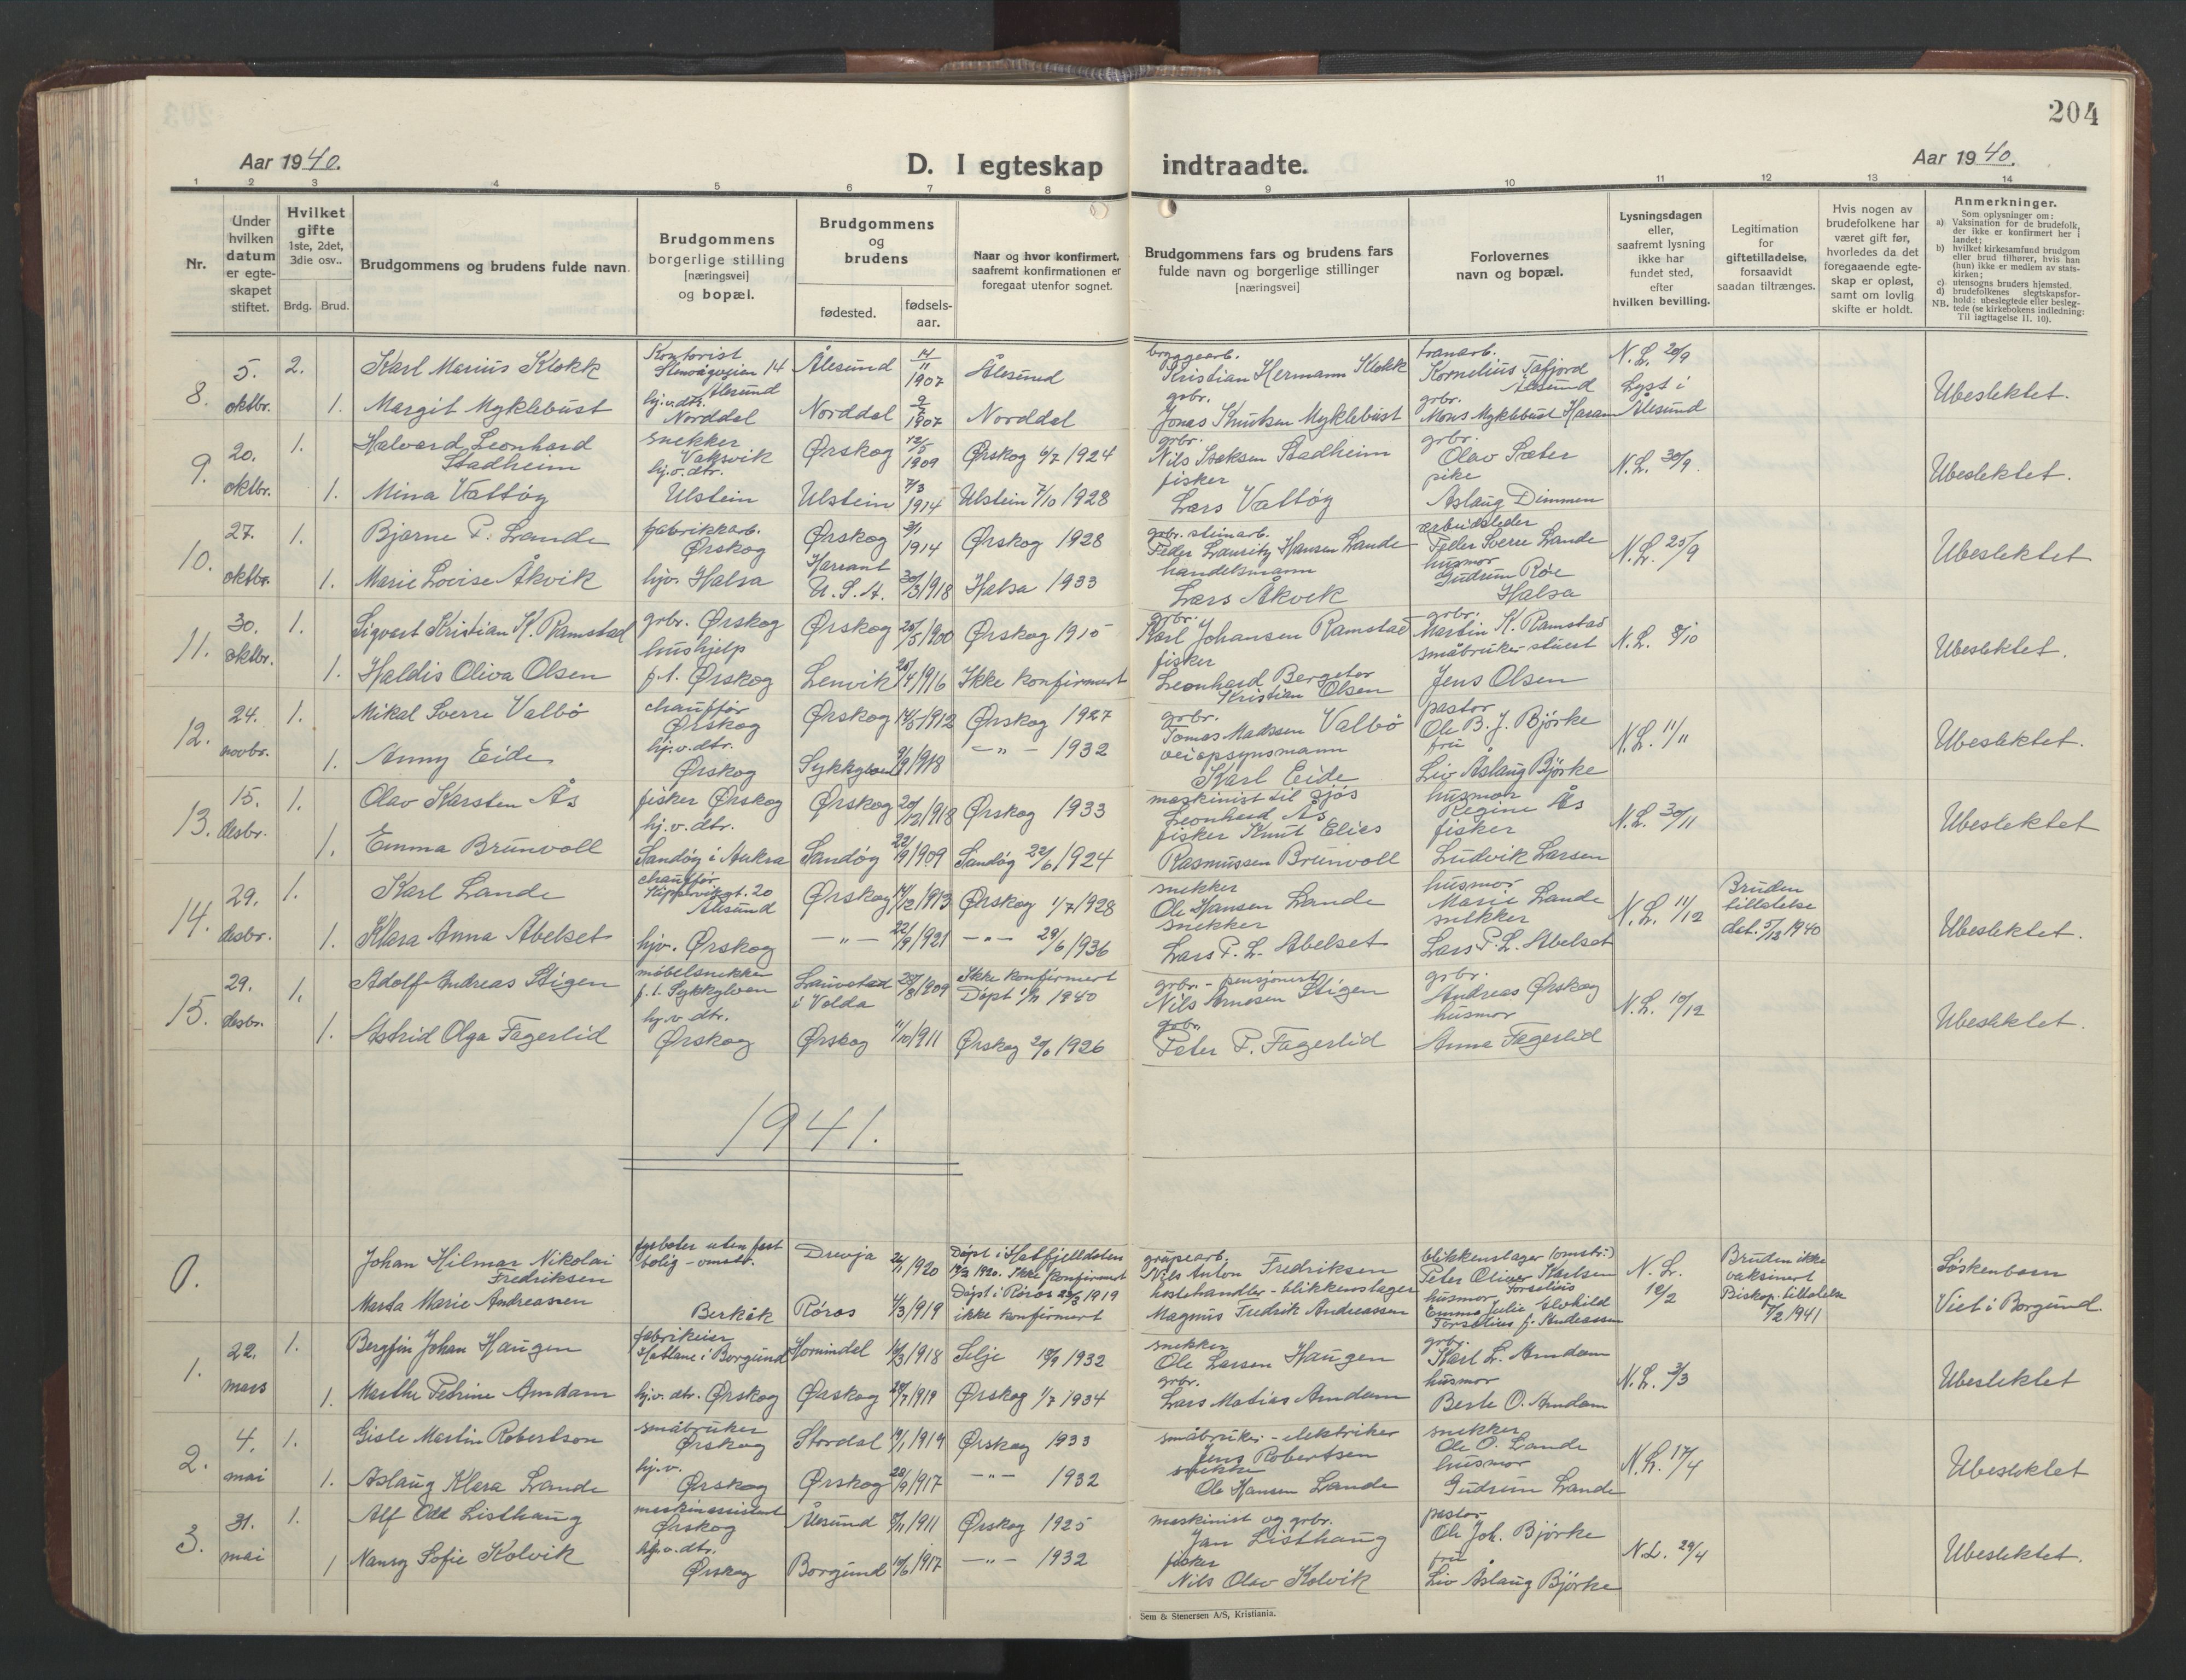 204
Aar 1940.
D. I egteskap indtraadte.
Aar 1940.
1 2 3 4 5 6 7 8 9 10 11 12 13 14
Nr.
Under hvilken datum er egte-skapet stiftet.
Hvilket gifte 1ste, 2det, 3die osv..
Brdg. Brud.
Brudgommens og brudens fulde navn.
Brudgommens borgerlige stilling [næringsvei] og bopæl.
Brudgommens og brudens
fødested. fødsels-aar.
Naar og hvor konfirmert, saafremt konfirmationen er foregaat utenfor sognet.
Brudgommens fars og brudens fars fulde navn og borgerlige stillinger [næringsvei]
Forlovernes navn og bopæl.
Lysningsdagen eller, saafremt lysning ikke har fundet sted, efter hvilken bevilling.
Legitimation for giftetilladelse, forsaavidt saadan tiltrænges.
Hvis nogen av brudefolkene har været gift før, hvorledes da det foregaaende egte-skap er opløst, samt om lovlig skifte er holdt.
Anmerkninger.
Som oplysninger om:
a) Vaksination for de brudefolk, der ikke er konfirmert her i landet;
b) hvilket kirkesamfund brudgom eller brud tilhører, hvis han (hun) ikke er medlem av stats-kirken;
c) utensogns bruders hjemsted.
d) brudefolkenes slegtskapsfor-hold: ubeslegtede eller besleg-tede (se kirkebokens indledning:
NB. Til iagttagelse II. 10).
8. 5. oktbr. 2. Karl Marius Klokk Kontorist 14 Ålesund Ålesund 14/11 1907 Ålesund bryggearb. Kristian Hermann Klokk tranarb. Kornelius Tafjord Ålesund N.L. 20/9
1. Margit Myklebust hj.v.dtr. Norddal Norddal 1907 Norddal grbr. Jonas Knutsen Myklebust grbr. Mons Myklebust Haram Lyst i Ålesund Ubeslektet.
9. 20. oktbr. 1. Halvard Leonhard Stadheim snekker Vaksvik Ørskog 12/5 1909 Ørskog 6/7 1924 grbr. Nils Isaksen Stadheim grbr. Olav Sæter N.L. 30/9.
1. Mina Vattøy hj.v.dtr. Ulstein Ulstein 7/3 1914 Ulstein 7/10 1928 fisker Lars Vattøy pike Aslaug Dimmen Ubeslektet.
10. 27. oktbr. 1. Bjarne P. Lande fabrikkarb. Ørskog Ørskog 3/1 1914 Ørskog 1928 grbr. steinarb. Peder Lauritz Hansen Lande arbeidsleder Peder Sverre Lande N.L. 25/9
1. Marie Lovise Åkvik hjv. Halsa U.S.A. 30/3 1918 Halsa 1933 handelsmann Lars Åkvik husmor Gudrun Røe Halsa Ubeslektet
11. 30. oktbr. 1. Sigvart Kristian K. Ramstad grbr. Ørskog Ørskog 20/5 1900 Ørskog 1915 grbr. Karl Johansen Ramstad grbr. Martin K. Ramstad N.L. 8/10
1. Haldis Oliva Olsen hushjelp p.t. Ørskog Lenvik 1916 Ikke konfirmert fisker Leonhard Bergetor Kristian Olsen småbruker - stuert Jens Olsen Ubeslektet.
12. 24. novbr. 1. Mikal Sverre Valbø chauffør Ørskog Ørskog 14/5 1912 Ørskog 1927 grbr. Tomas Madssen Valbø pastor Ole B. J. Bjørke N.L. 11/11
1. Anny Eide hj.v.dtr. Ørskog Sykkylven 1918 —„— 1932 veiopsynsmann Karl Eide fru Liv Åslaug Bjørke Ubeslektet.
13. 15. desbr. 1. Olav Karsten Ås fisker Ørskog Ørskog 20/12 1918 Ørskog 1933 maskinist til sjøs Leonhard Ås husmor Regine Ås N.L. 30/11
1. Emma Brunvoll hj.v.dtr. Sandøy i Aukra Sandøy 22/9 1909 Sandøy 22/6 1924 fisker Knut Elias Rasmussen Brunvoll fisker Ludvik Larsen Ubeslektet
14. 29. desbr. 1. Karl Lande chauffør Kippervikgt. 20 Ålesund Ørskog 14/12 1913 Ørskog 1/7 1928 snekker Ole Hansen Lande husmor Marie Lande N.L. 11/12 Bruden tillatelse dat. 5/12 1940
1. Klara Anna Abelset hjv. Ørskog —„— 22/9 1921 —„— 29/6 1936 snekker Lars P. L. Abelset snekker Lars P. L. Abelset Ubeslektet.
15. 29. desbr. 1. Adolf Andreas Stigen møbelsnekker p.t. Sykkylven Lauvstad i Volda 28/8 1909 Ikke konfirmert Døpt 1940 grbr. - pensjonert Nils Arnesen Stigen grbr. Andreas Ørskog N.L. 10/12
1. Astrid Olga Fagerlid hj.v.dtr. Ørskog Ørskog 11/10 1911 Ørskog 1926 grbr. Peter P. Fagerlid husmor Anna Fagerlid Ubeslektet.
1941.
0. Johan Hilmar Nikolai Fredriksen uten fast bolig - omstr. Drevja 1920 Døpt i Hatfjelldalen 1920. Ikke konfirmert Nils Anton Fredriksen blikkenslager (omstr.) Peter Oliver Karlsen N.L. 12/2 Bruden ikke vaksinert Søskenbarn
Marta Marie Andreassen Berkåk Røros 4/3 1919 Døpt i Røros 23/3 1919 ikke konfirmert hestehandler - blikkenslager Magnus Fredrik Andreassen husmor Emma Julie Torselius f. Andreassen Biskop. tillatelse 7/2 1941 Viet i Borgund.
1. 22. mars 1. Bergfin Johan Haugen fabrikeier Hatlane i Borgund Hornindal 1918 Selje 18/9 1932 snekker Ole Larsen Haugen grbr. Karl L. Amdam N.L. 3/3
1. Marthe Petrine Amdam hj.v. dtr. Ørskog Ørskog 1919 Ørskog 1/7 1934 grbr. Lars Matias Amdam husmor Berte O. Amdam Ubeslektet
2. 4. mai 1. Gisle Martin Robertson småbruker Ørskog Stordal 1914 Ørskog 1933 småbruker - elektriker Jens Robertsen snekker Ole O. Lande N.L. 17/4
1. Aslaug Klara Lande hj.v. Ørskog Ørskog 28/9 1917 —„— 1932 snekker Ole Hansen Lande husmor Gudrun Lande Ubeslektet
3. 31. mai 1. Alf Odd Listhaug maskinassistent Ørskog Ålesund 1911 Ørskog 1925 maskinist og grbr. Jan Listhaug pastor Ole Joh. Bjørke N.L. 29/4
1 Nancy Sofie Kolvik hj.v.dtr. Ørskog Borgund 10/6 1917 —„— 1932 fisker Nils Olav Kolvik fru Liv Åslaug Bjørke Ubeslektet.
Sem & Stenersen A/S, Kristiania.